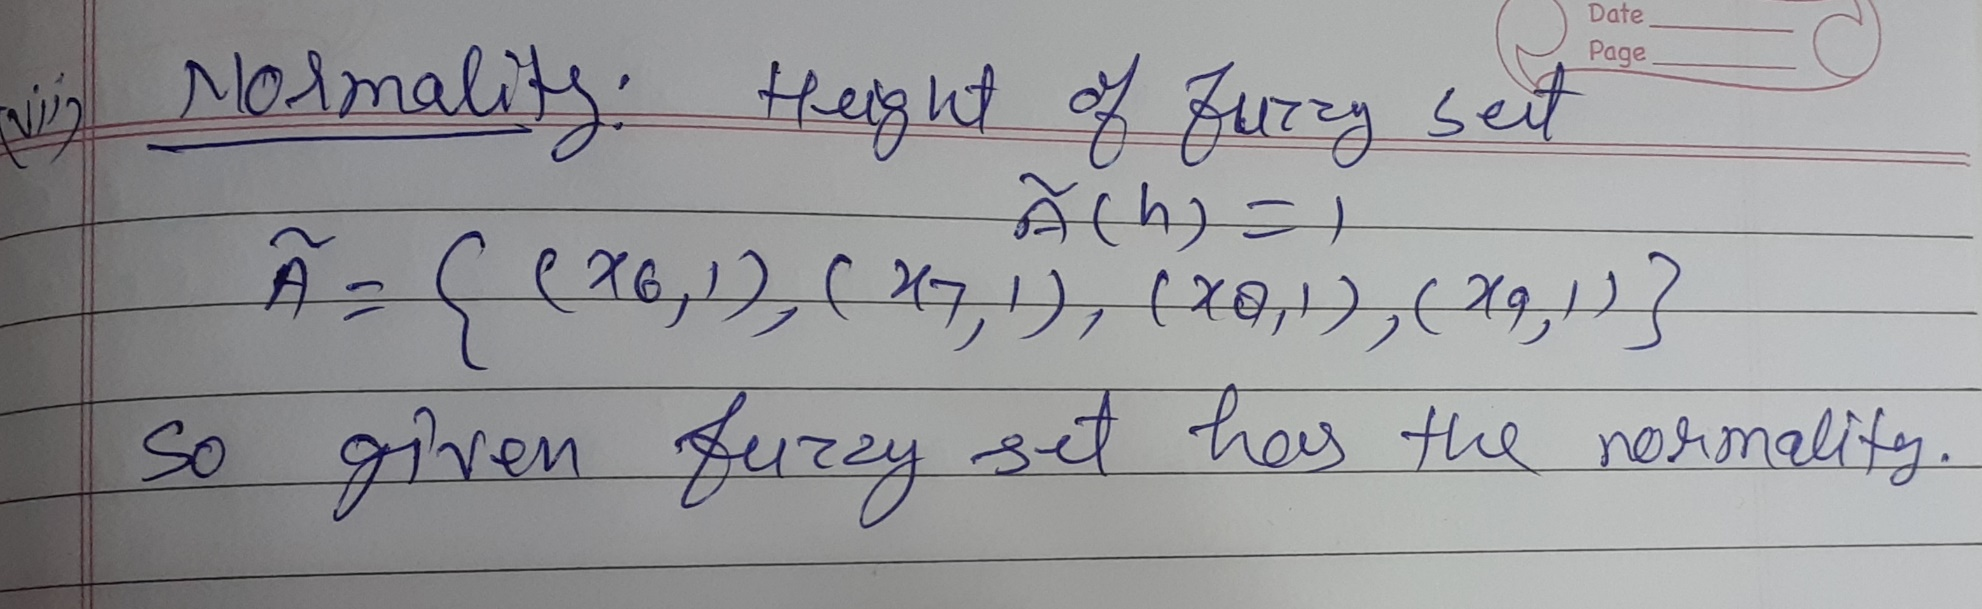 Date
Page
(vii) Normality: Height of fuzzy set
Ã(h) = 1
Ã = { (x6,1), (x7,1), (x8,1), (x9,1) }
So given fuzzy set has the normality.